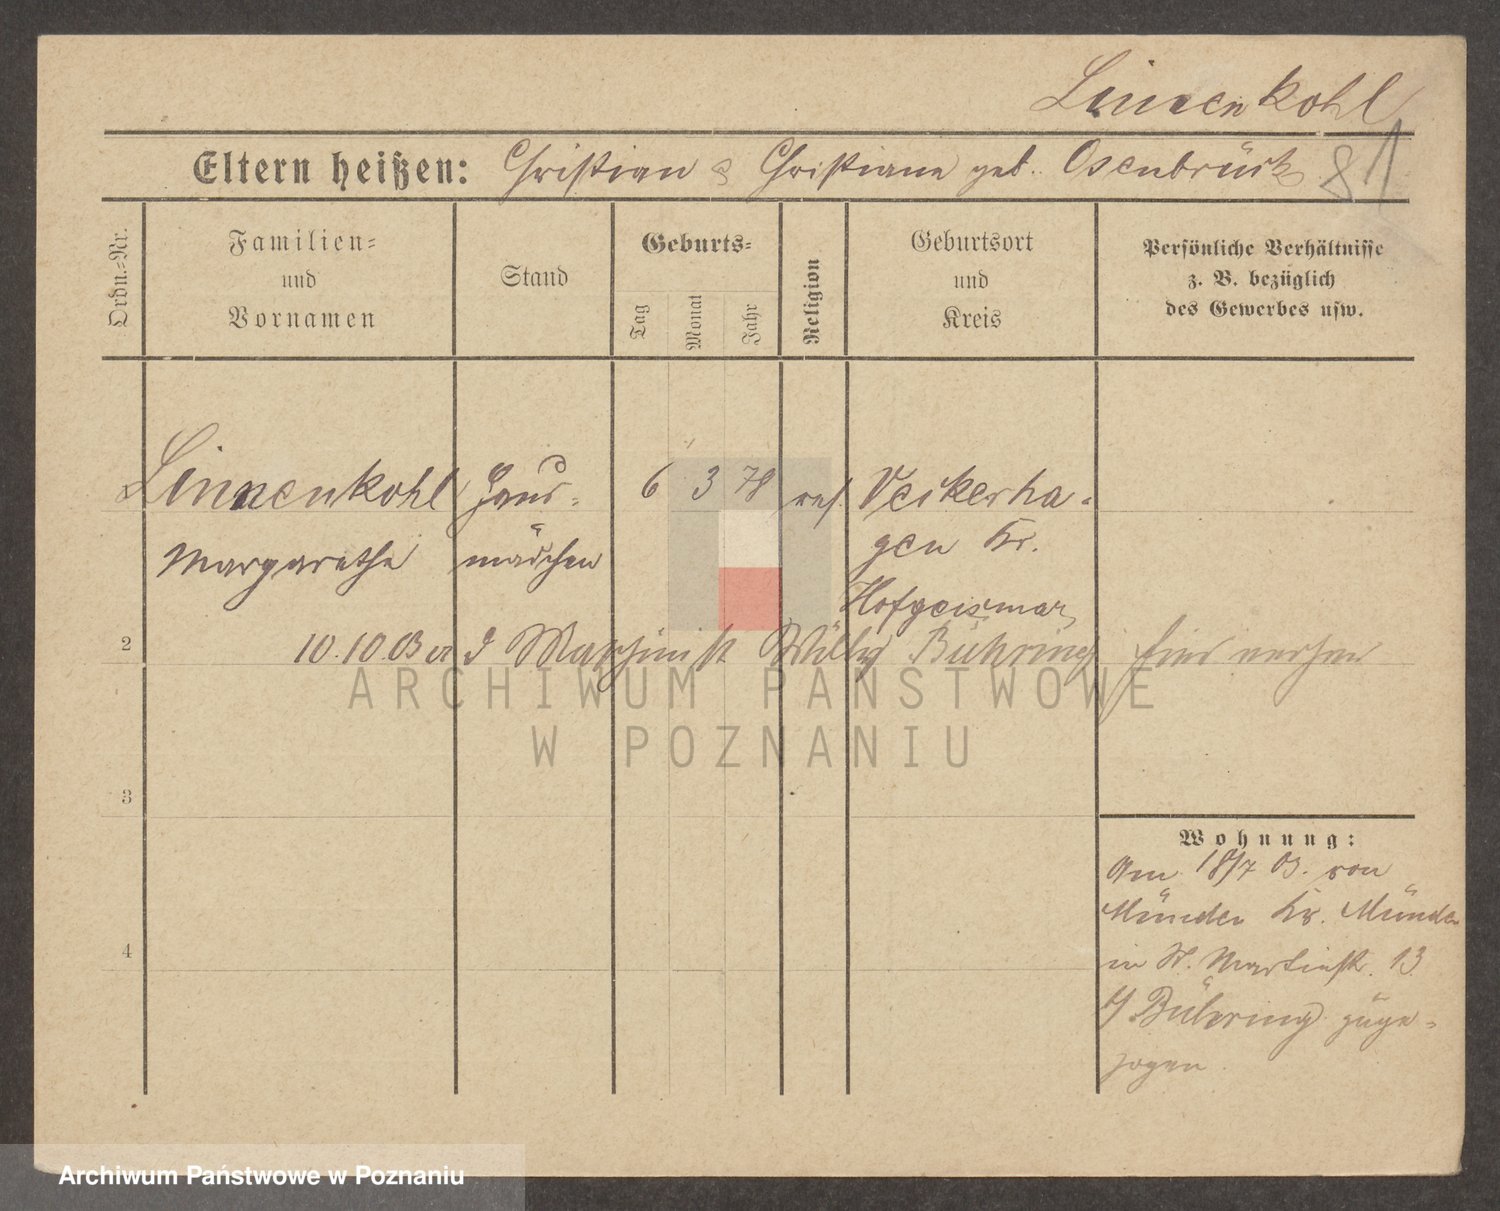 Linnenkohl
Eltern heißen: Christian & Christiane geb. Osenbrück 81
Ordn.-Nr.
Familien- und Vornamen
Stand
Geburts-
Tag
Monat
Jahr
Religion
Geburtsort und Kreis
Persönliche Verhältnisse z. B. bezüglich des Gewerbes usw.
Linnenkohl Haus- 6 3 78 ref. Veckerha-
Margarethe mädchen gen Kr.
Hofgeismar
2 10.10.03 d Maschinist Willy Bühring
ARCHIWUM PAŃSTWOWE
W POZNANIU
3
Wohnung:
Am 18/7 03. von
Münden Kr. Münden
4
in St. Martinstr. 13
b/ Bühring zuge-
zogen
Archiwum Państwowe w Poznaniu